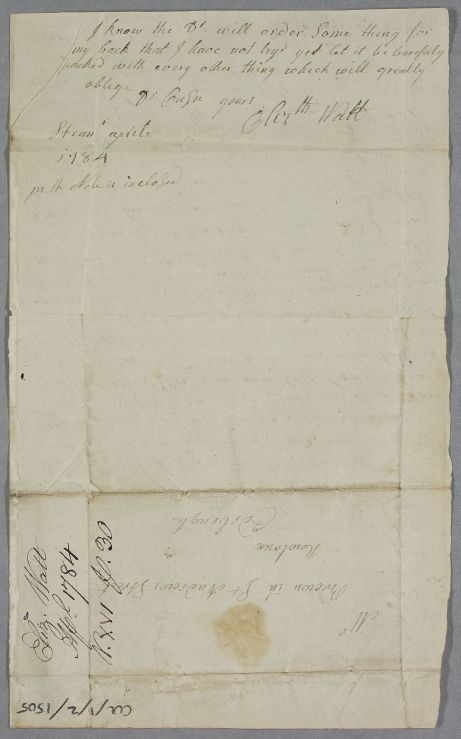 I know the Dr will order Some thing for
my back that I have not tryd yet let it be Carefuly
packed with every other thing which will greatly
oblige Dr Cusn yours
Elizth Watt
Stranr aprile
1784
the Note is inclosed
Mr
Brown in St Andrews Street
Newtown
Edinburgh
Eliz. Watt
Apl 1784
P. XVI fo. 30
CU/1/2/1505